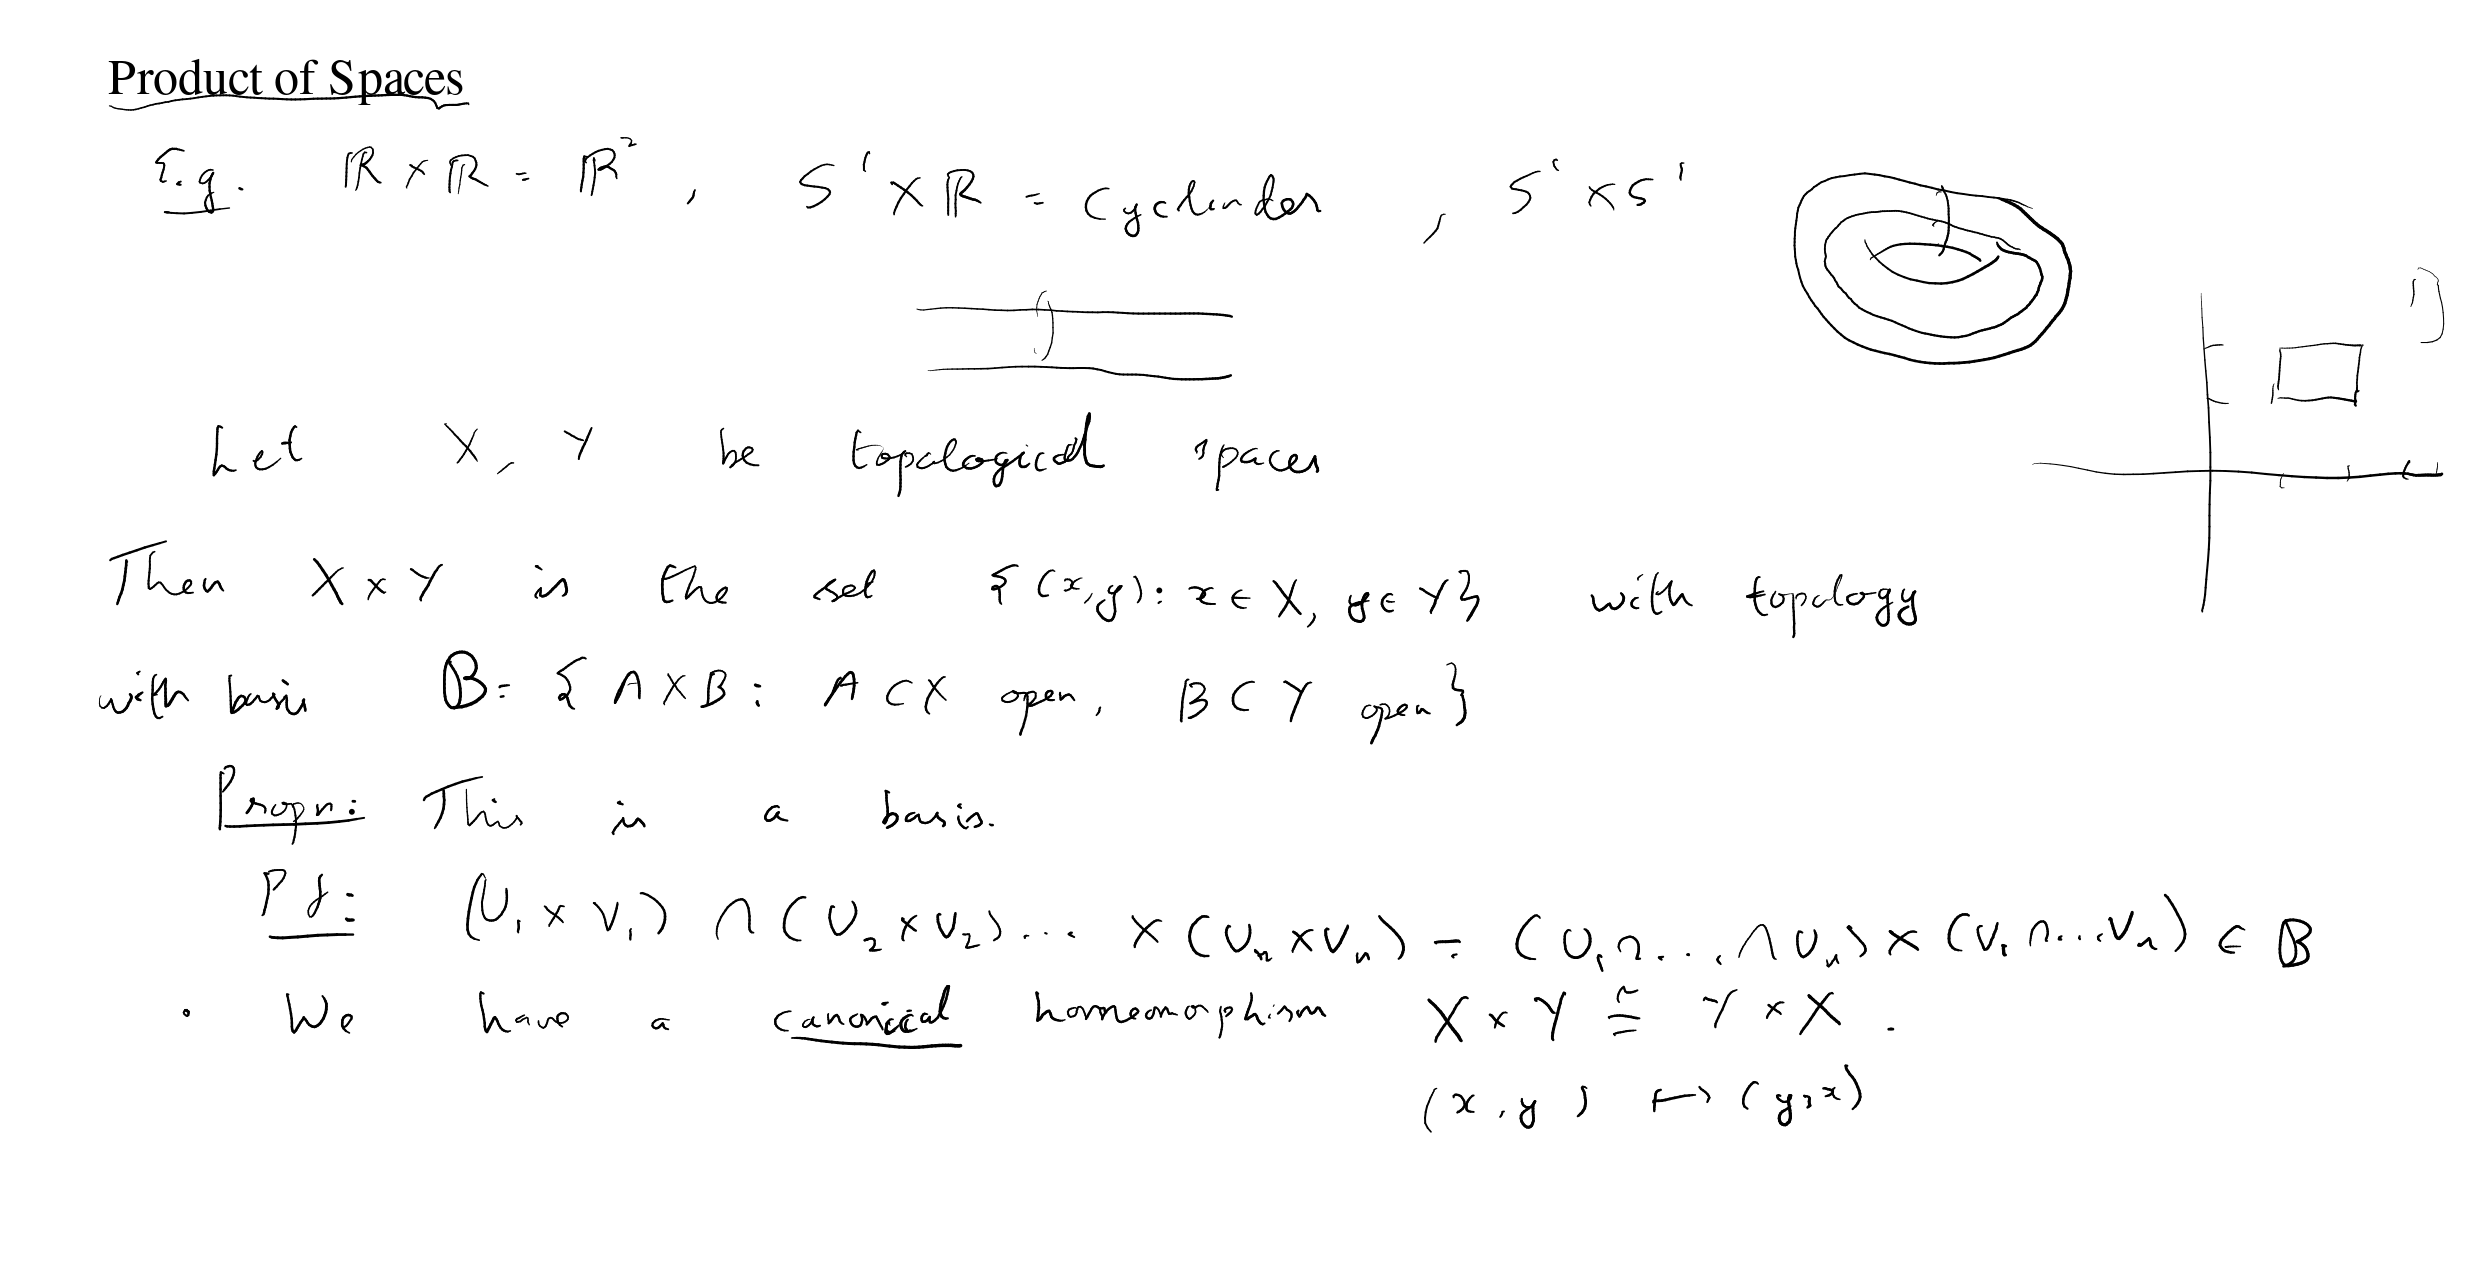 Product of Spaces
E.g. ℝ × ℝ = ℝ², S¹ × ℝ = Cyclinder, S¹ × S¹
Let X, Y be topological spaces
Then X × Y is the set {(x,y): x ∈ X, y ∈ Y} with topology
with basis 𝔹 = {A × B : A ⊂ X open, B ⊂ Y open}
Propn: This is a basis.
Pf: (U₁ × V₁) ∩ (U₂ × V₂) ... × (Uₙ × Vₙ) = (U₁ ∩ ... ∩ Uₙ) × (V₁ ∩ ... Vₙ) ∈ 𝔹
• We have a canonical homeomorphism X × Y ≅ Y × X.
(x, y) ↦ (y, x)